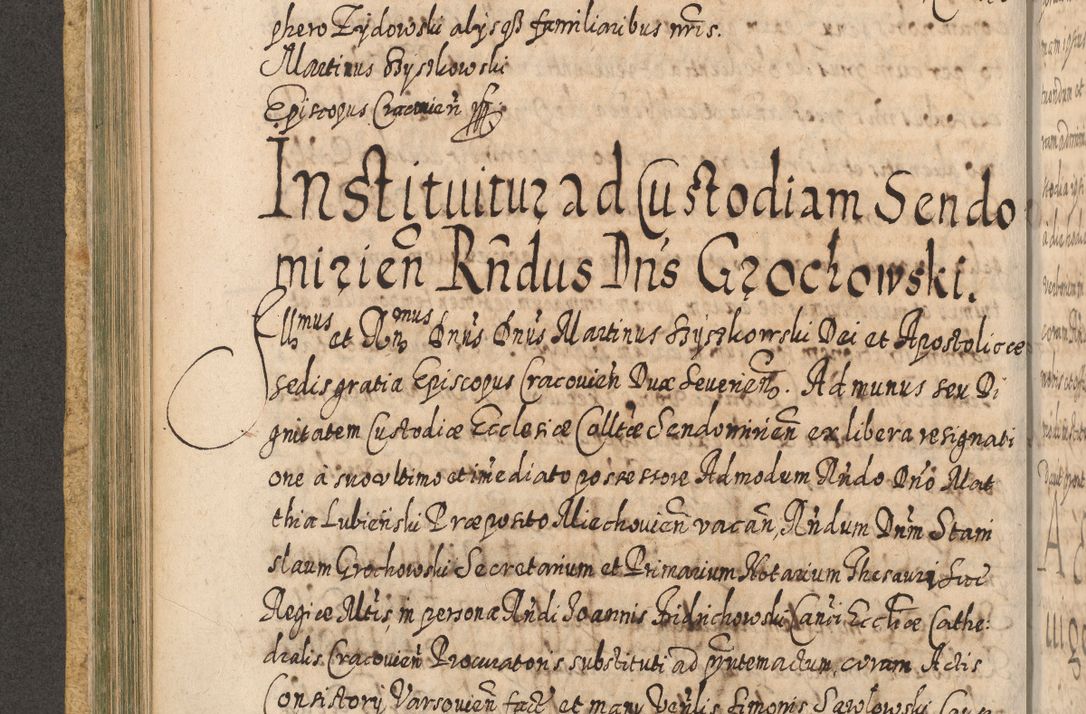 phero Zydowski alysqß familiaribus nr̃is.
Martinus Szyszkowski
Episcopus Cracovien̄
Instituitur ad Custodiam Sendo
mirien̄ Rn̄dus Dn̄s Grochowski.
Illmus et Rn̄mus Dn̄us Dn̄us Martinus Szyszkowski Dei et Apostolicæ
sedis gratia Episcopus Cracovien̄ Dux Severien̄. Ad munus seu Di
gnitatem Custodiæ Ecclesiæ Colltæ Sendomirien̄ ex libera resignati
one à suo ultimo et im̄ediato possessore Admodum Rn̄do Dn̄o Mat
thia Lubieński Præposito Miechovien̄ vacan̄, Rn̄dum Dn̄m Stani
slaum Grochowski Secretarium et Primarium Notarium Thesauri Sac̄
Regiæ Mtis, in persona Rn̄di Joannis Fidrichowski Can̄ci Eccl̄iæ Cathe:
dralis Cracovien̄ Procuratoris substituti ad pn̄tem actum, coram Actis
Consistory Varsovien̄ fact̄ et manu Ven̄lis Simonis